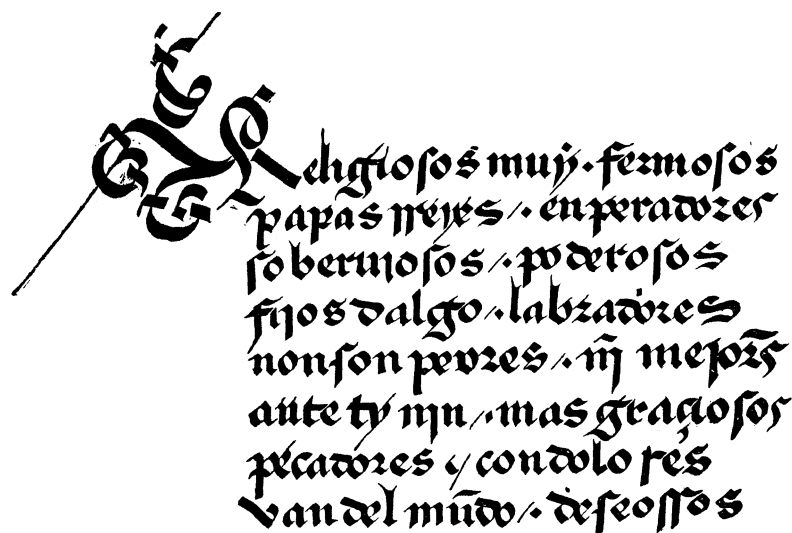 Religiosos muy . fermosos
papas rreyes / . enperadores
sobervjosos / . poderosos
fijos dalgo / . labradores
non son peores / . nj mejores
ante ty njn / . mas graçiosos
pecadores y con dolores
van del mũdo / . deseossos